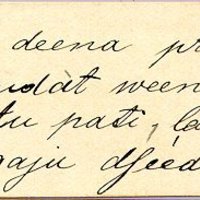 deena pr
udát ween
tu pati, la
gaju dseed